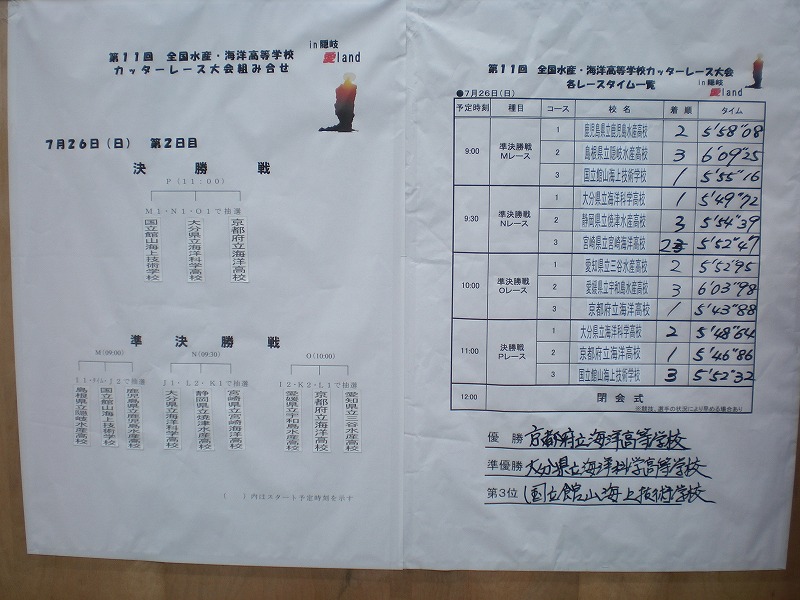 第11回 全国水産・海洋高等学校
カッターレース大会組み合せ
in隠岐
愛land
7月26日(日) 第2日目
決勝戦
P(11:00)
M1・N1・O1で抽選
国立館山海上技術学校
大分県立海洋科学高校
京都府立海洋高校
準決勝戦
M(09:00) N(09:30) O(10:00)
I1・タイム・J2で抽選 J1・L2・K1で抽選 I2・K2・L1で抽選
島根県立隠岐水産高校
国立館山海上技術学校
鹿児島県立鹿児島水産高校
大分県立海洋科学高校
静岡県立焼津水産高校
宮崎県立宮崎海洋高校
愛媛県立宇和島水産高校
京都府立海洋高校
愛知県立三谷水産高校
( )内はスタート予定時刻を示す
第11回 全国水産・海洋高等学校カッターレース大会
各レースタイム一覧
in隠岐
愛land
●7月26日(日)
予定時刻 種目 コース 校名 着順 タイム
9:00 準決勝戦 Mレース
1 鹿児島県立鹿児島水産高校 2 5'58"08
2 島根県立隠岐水産高校 3 6'09"25
3 国立館山海上技術学校 1 5'55"16
9:30 準決勝戦 Nレース
1 大分県立海洋科学高校 1 5'49"72
2 静岡県立焼津水産高校 3 5'54"39
3 宮崎県立宮崎海洋高校 2 5'52"47
10:00 準決勝戦 Oレース
1 愛知県立三谷水産高校 2 5'52"95
2 愛媛県立宇和島水産高校 3 6'03"98
3 京都府立海洋高校 1 5'43"88
11:00 決勝戦 Pレース
1 大分県立海洋科学高校 2 5'48"64
2 京都府立海洋高校 1 5'46"86
3 国立館山海上技術学校 3 5'52"32
12:00 閉会式
※競技、選手の状況により早める場合あり
優勝 京都府立海洋高等学校
準優勝 大分県立海洋科学高等学校
第3位 国立館山海上技術学校